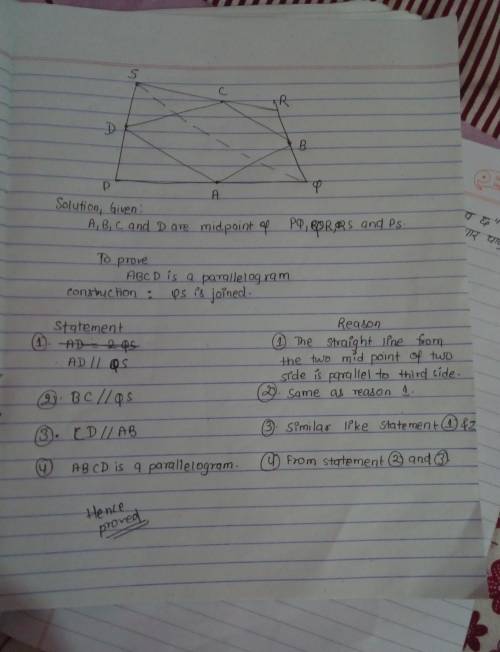 S
C
R
D
B
P
A
Q
Solution, Given:
A, B, C and D are midpoint of PQ, QR, RS and PS.
To prove
ABCD is a parallelogram
construction : QS is joined.
Statement
Reason
① AD = 2 QS
AD // QS
① The straight line from
the two mid point of two
side is parallel to third side.
②. BC // QS
②. same as reason 1.
③. CD // AB
③. similar like statement ① & 2
④ ABCD is a parallelogram.
④ From statement ② and ③
Hence
proved